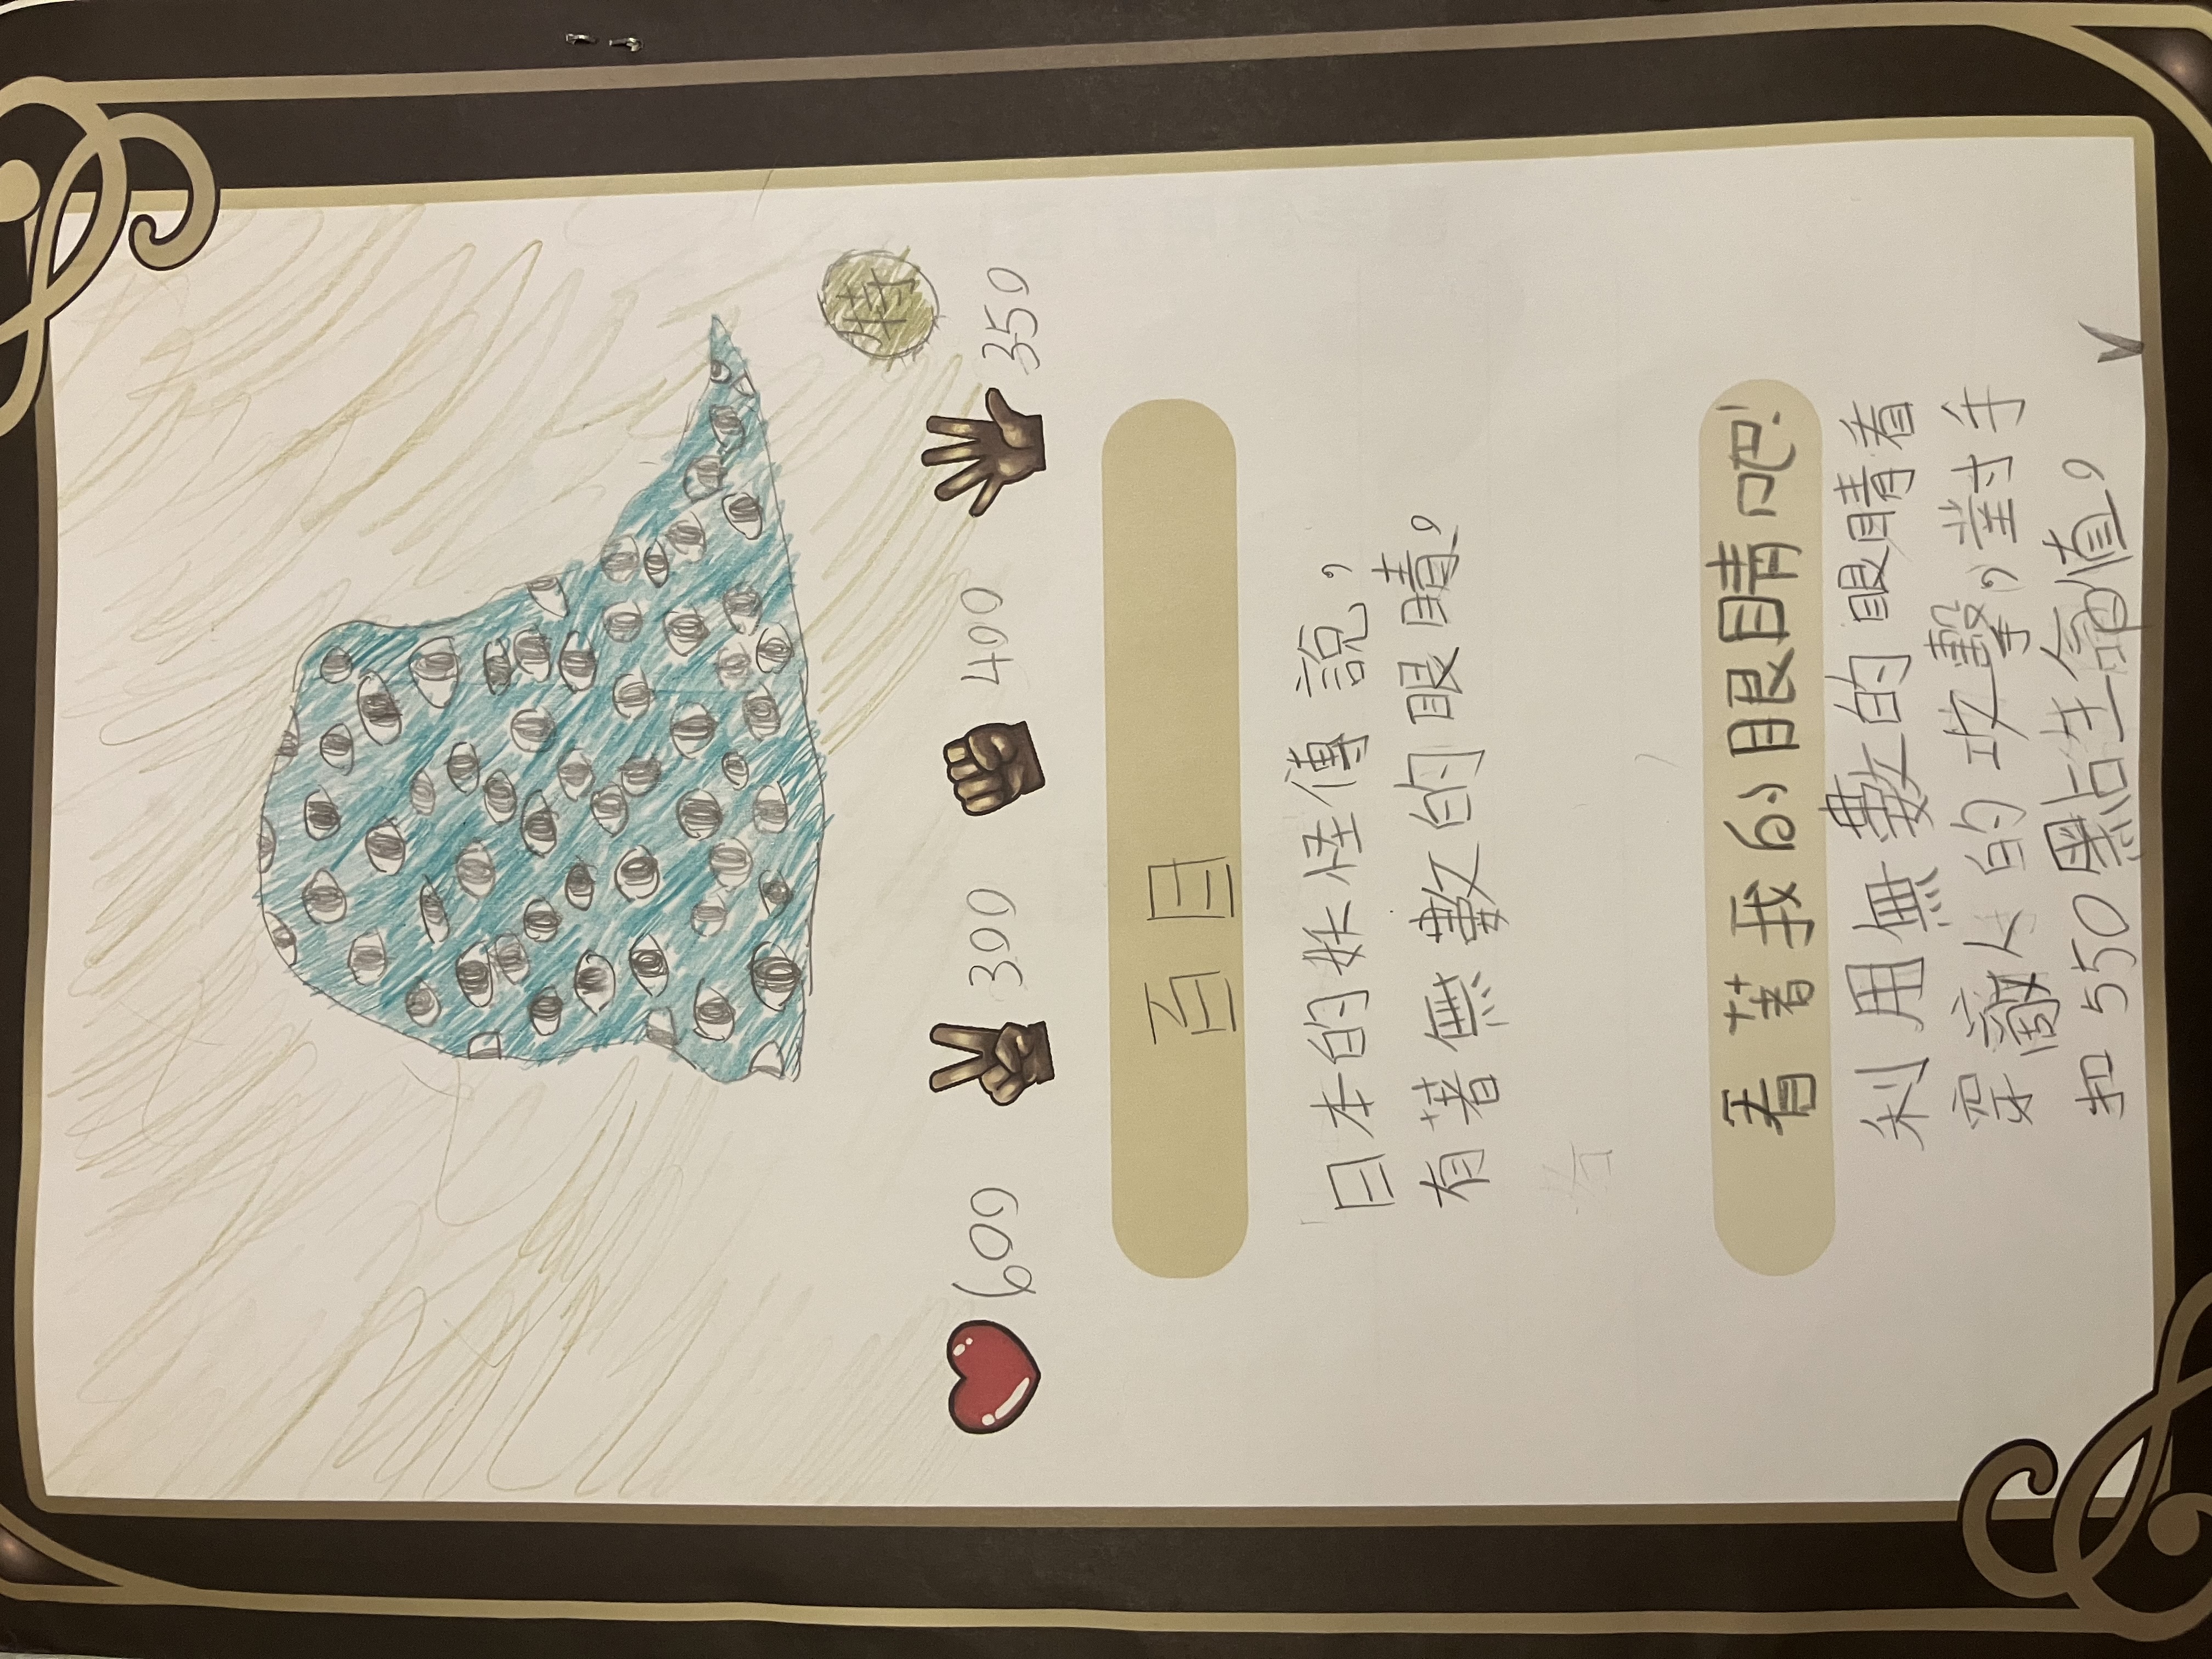 600 300 400 350
百目
日本的妖怪傳說，
有著無數的眼睛。
看著我的眼睛吧!
利用無數的眼睛看
穿敵人的攻擊，對手
扣550點生命值。